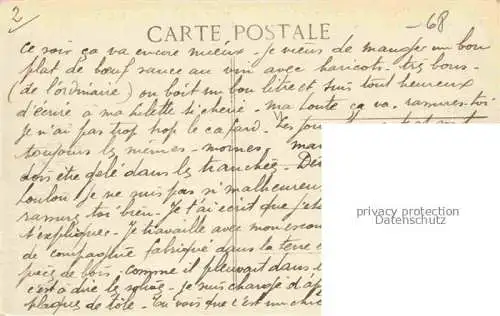 2
-68
CARTE POSTALE
Ce soir ça va encore mieux - je viens de manger un bon
plat de bœuf sauce au vin avec haricots très bons -
(de l'ordinaire) on boit un bon litre et suis tout heureux
d'écrire à ma Lulette si chérie - ma Loute ça va. rassures-toi -
Je n'ai pas trop trop le cafard. Les
toujours les mêmes - moines. mar
être gelé dans les tranchées. De
Toulon. Je ne suis pas si malheureux
rassures toi bien. Je t'ai écrit que
t'expliquer. Je travaille avec mon escou
de compagnie fabriqué dans la terre
pièces de bois ; comme il pleuvait dans
c'est à dire le je suis chargé d'
plaques de tôle. Tu vois que c'est un chic
privacy protection
www.ansichtskartenversand.com